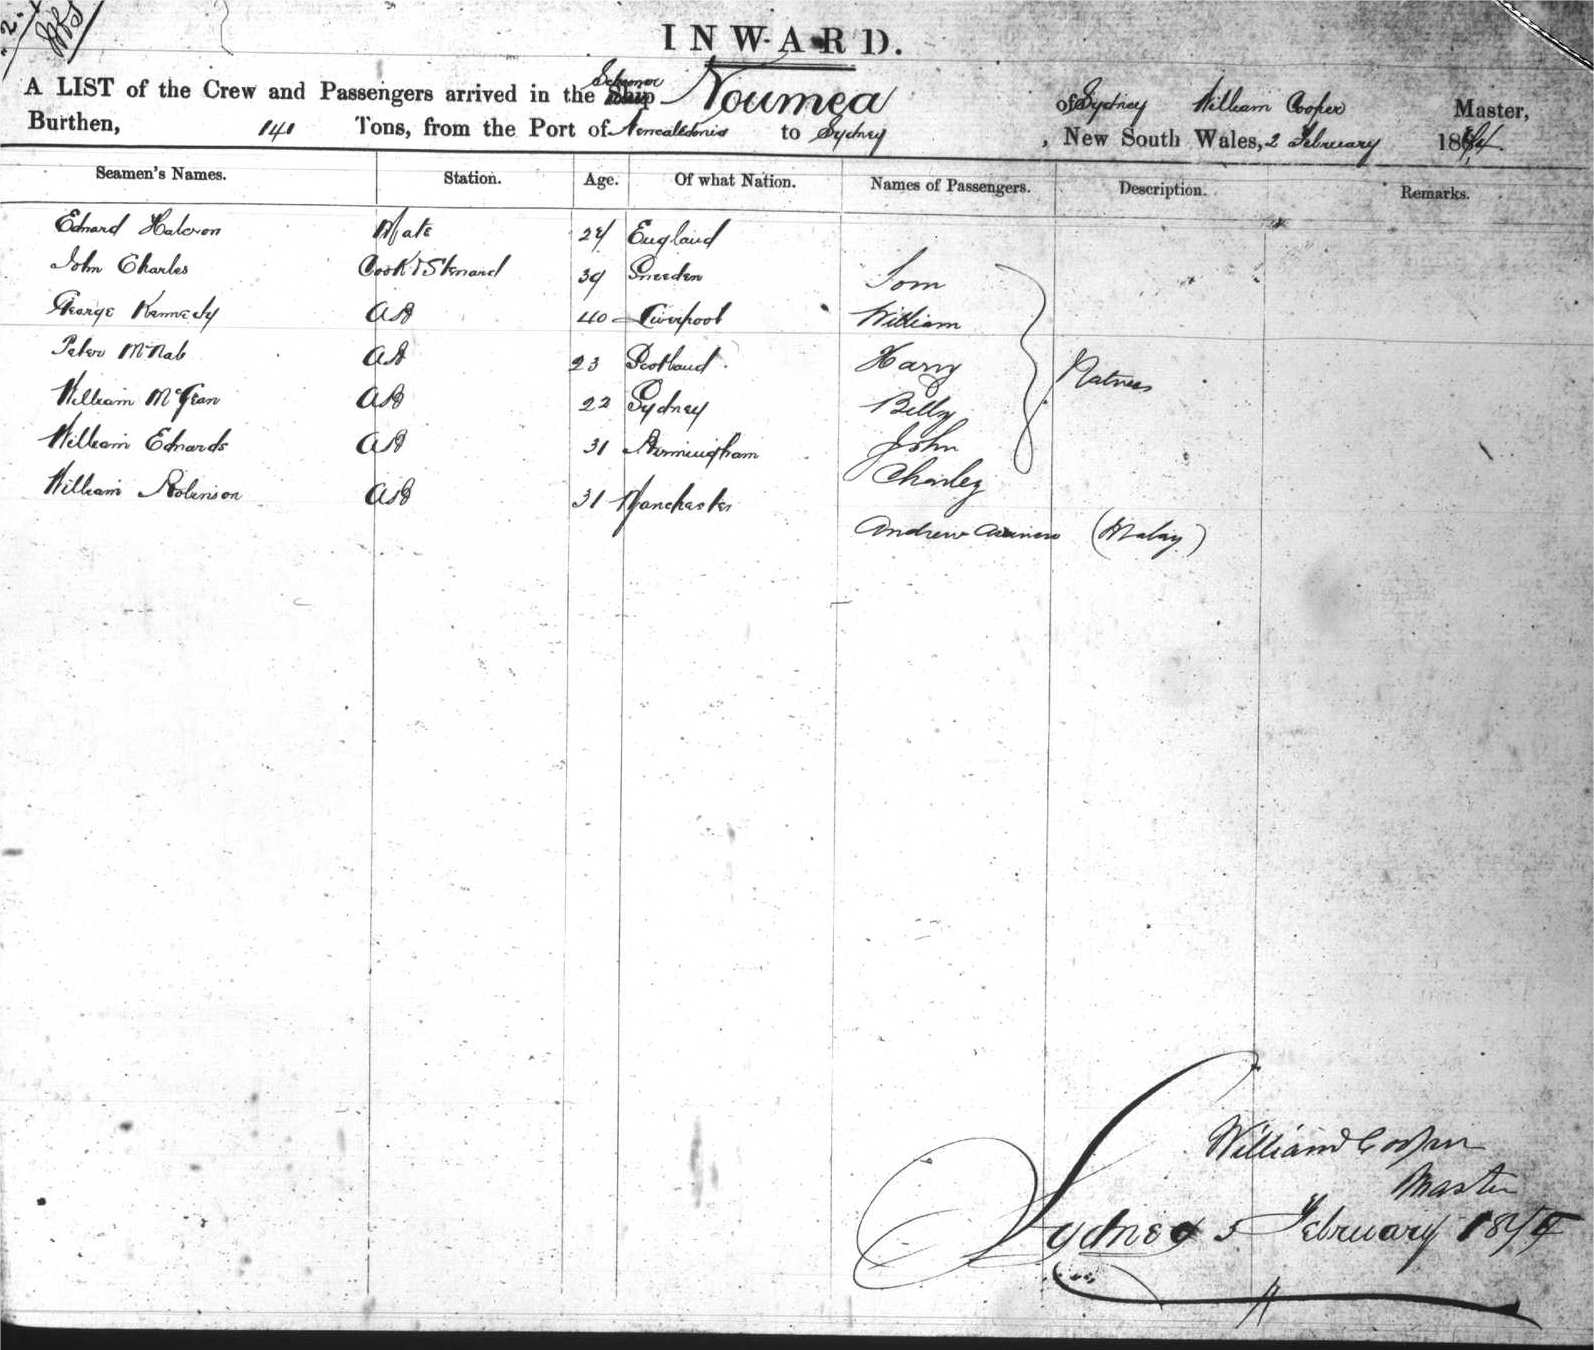 INWARD.
A LIST of the Crew and Passengers arrived in the Schooner Ship Noumea of Sydney William Cooper Master,
Burthen, 141 Tons, from the Port of Newcaledonia to Sydney , New South Wales, 2 February 1874.
Seamen's Names. Station. Age. Of what Nation. Names of Passengers. Description. Remarks.
Edward Halcron Mate 24 England
John Charles Cook & Steward 39 Sweeden Tom
George Kennedy AB 40 Liverpool William
Peter McNab AB 23 Scotland Harry Natives
William McGean AB 22 Sydney Billy
William Edwards AB 31 Birmingham John
Charley
William Robinson AB 31 Manchester
Andrew (Malay)
William Cooper
Master
Sydney 5 February 1874